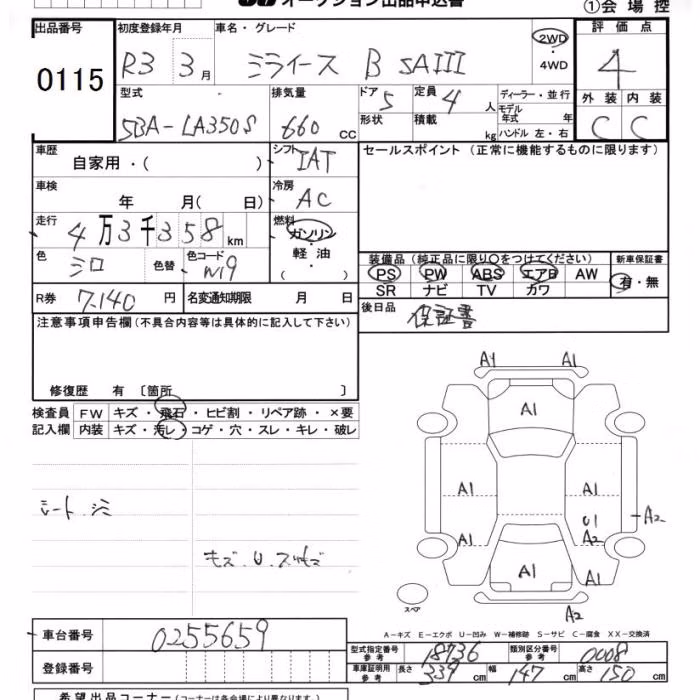 オークション出品申込書 ①会場控
出品番号 0115
初度登録年月 R3 3月
車名・グレード ミライース B SAIII
2WD・4WD
評価点 4
型式 5BA-LA350S
排気量 660 cc
ドア 5 形状
定員 4 人 積載 kg
ディーラー・並行
モデル年式 年
ハンドル 左・右
外装 内装
C C
車歴 自家用・( )
シフト IAT
セールスポイント (正常に機能するものに限ります)
車検 年 月( 日)
冷房 AC
走行 4万3千358 km
燃料 ガソリン・軽油・( )
色 シロ 色替 色コード W19
装備品 (純正品に限り○をつけてください) 新車保証書
PS PW ABS エアB AW 有・無
SR ナビ TV カワ
R券 7.140 円 名変通知期限 月 日
後日品 保証書
注意事項申告欄(不具合内容等は具体的に記入して下さい)
修復歴 有〔箇所 〕
検査員 FW キズ・飛石・ヒビ割・リペア跡・×要
記入欄 内装 キズ・汚レ・コゲ・穴・スレ・キレ・破レ
シート シミ
キズ.U.スリキズ
A1 A1
A1
A1 A1
U1 A2
A1 A2
A1 A1
A2
スペア
A-キズ E-エクボ U-凹み W-補修跡 S-サビ C-腐食 XX-交換済
車台番号 0255659
型式指定番号 参考 18736 類別区分番号 参考 0008
登録番号
車庫証明用 参考 長さ 339 cm 幅 147 cm 高さ 150 cm
希望出品コーナー (コーナーは各会場により異なります。)